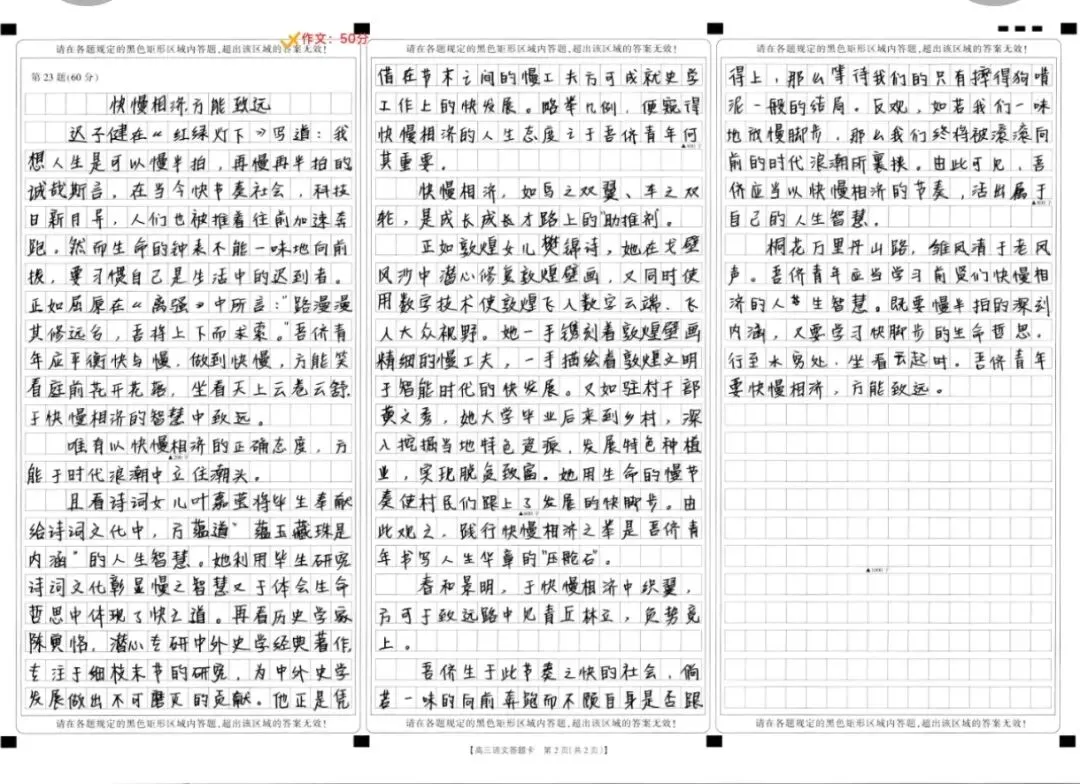 作文：50分
请在各题规定的黑色矩形区域内答题，超出该区域的答案无效！
第23题(60分)
快慢相济方能致远
迟子健在《红绿灯下》写道：我
想人生是可以慢半拍，再慢再半拍的
诚哉斯言，在当今快节奏社会，科技
日新月异，人们也被推着往前加速奔
跑。然而生命的钟表不能一味地向前
拨，要习惯自己是生活中的迟到者。
正如屈原在《离骚》中所言："路漫漫
其修远兮，吾将上下而求索。"吾侪青
年应平衡快与慢，做到快慢，方能笑
看庭前花开花落，坐看天上云卷云舒，
于快慢相济的智慧中致远。
唯有以快慢相济的正确态度，方
▲200字
能于时代浪潮中立住潮头。
且看诗词女儿叶嘉莹将毕生奉献
给诗词文化中，方蕴道"蕴玉藏珠是
内涵"的人生智慧。她利用毕生研究
诗词文化彰显慢之智慧又于体会生命
哲思中体现了快之道。再看历史学家
陈寅恪，潜心专研中外史学经典著作，
专注于细枝末节的研究，为中外史学
发展做出不可磨灭的贡献。他正是凭
请在各题规定的黑色矩形区域内答题，超出该区域的答案无效！
请在各题规定的黑色矩形区域内答题，超出该区域的答案无效！
借在节末之间的慢工夫方可成就史学
工作上的快发展。略举几例，便窥得
快慢相济的人生态度之于吾侪青年何
其重要。
快慢相济，如鸟之双翼、车之双
轮，是成长成长才路上的助推剂。
正如敦煌女儿樊锦诗，她在戈壁
风沙中潜心修复敦煌壁画，又同时使
用数字技术使敦煌飞入数字云端、飞
入大众视野。她一手镌刻着敦煌壁画
精细的慢工夫，一手描绘着敦煌文明
于智能时代的快发展。又如驻村干部
黄文秀，她大学毕业后来到乡村，深
入挖掘当地特色资源，发展特色种植
业，实现脱贫致富。她用生命的慢节
奏使村民们跟上了发展的快脚步。由
▲600字
此观之，践行快慢相济之举是吾侪青
年书写人生华章的"压舱石"。
春和景明，于快慢相济中织翼，
方可于致远路中见青丘林立，负势竞
上。
吾侪生于此节奏之快的社会，倘
若一味的向前奔跑而不顾自身是否跟
请在各题规定的黑色矩形区域内答题，超出该区域的答案无效！
【高三语文答题卡 第2页(共2页)】
请在各题规定的黑色矩形区域内答题，超出该区域的答案无效！
得上，那么等待我们的只有摔得狗啃
泥一般的结局。反观，如若我们一味
地放慢脚步，那么我们终将被滚滚向
前的时代浪潮所裹挟。由此可见，吾
侪应当以快慢相济的节奏，活出属于
自己的人生智慧。
桐花万里丹山路，雏凤清于老凤
声。吾侪青年应当学习前贤们快慢相
济的人生智慧。既要慢半拍的深刻
内涵，又要学习快脚步的生命哲思。
行至水穷处，坐看云起时。吾侪青年
要快慢相济，方能致远。
▲1000字
请在各题规定的黑色矩形区域内答题，超出该区域的答案无效！